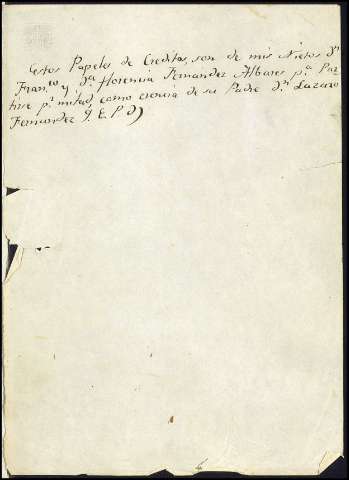 Estos Papeles de Creditos, son de mis Nietos Dn
Franco y Da Florencia Fernandez Albares pa Par
tirse pr mitad, como erencia de su Padre Dn Lazaro
Fernandez Q. E. P. D)